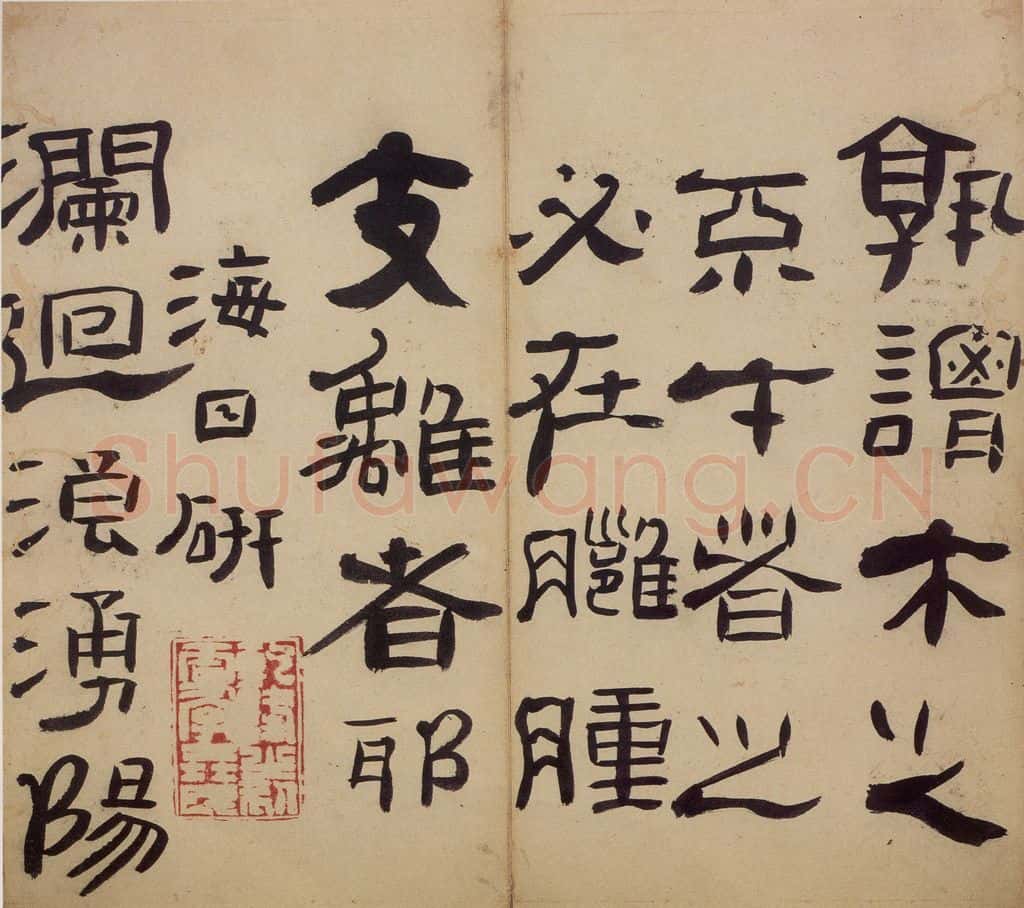 孰謂木之
之
必在臃腫
支離者耶
海日研
瀾迴浪湧陽
Shufawang.CN